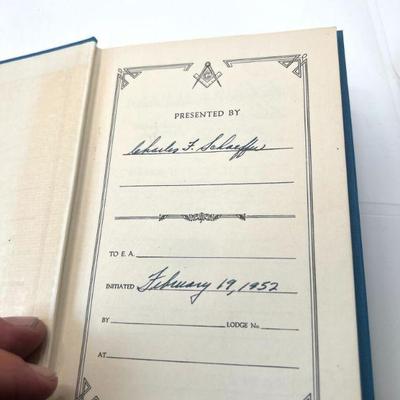 PRESENTED BY
Charles F. Schaeffer
TO E. A.
INITIATED February 19, 1952
BY LODGE No.
AT